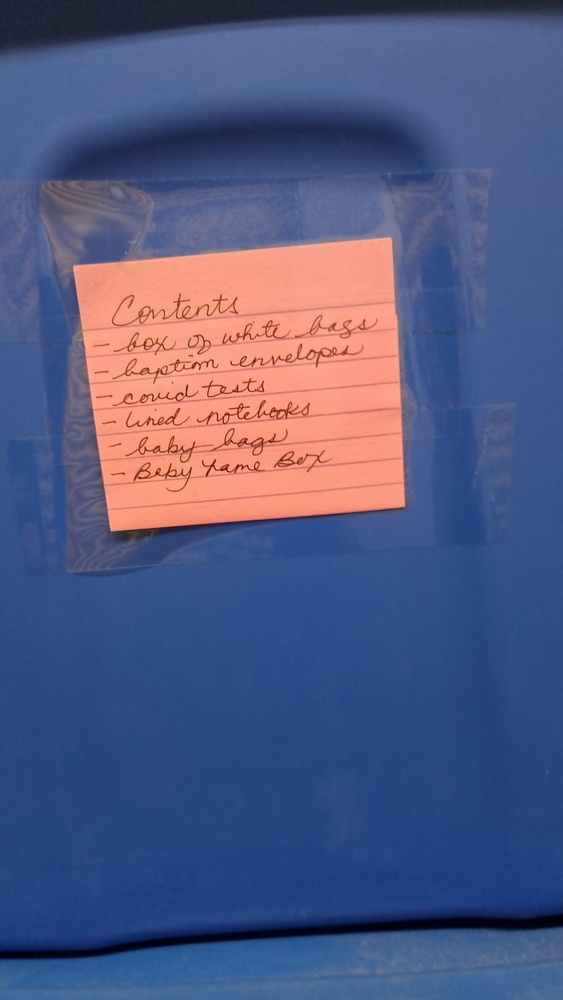 Contents
- box of white bags
- baptism envelopes
- covid tests
- lined notebooks
- baby bags
- Baby Name Box